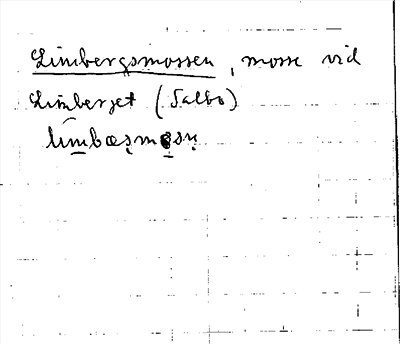 Limbergsmossen, mosse vid
Limberget (Salbo)
limbæsmosn